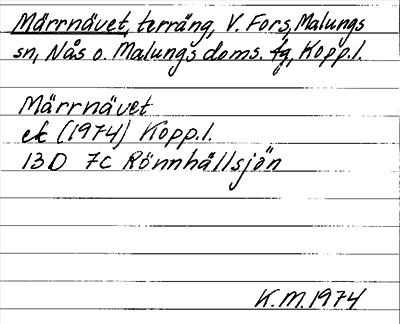 Märrnävet, terräng, V. Fors, Malungs
sn, Nås o. Malungs doms. fg, Kopp.l.
Märrnävet
ek (1974) Kopp.l.
13D 7C Rönnhällsjön
K.M. 1974